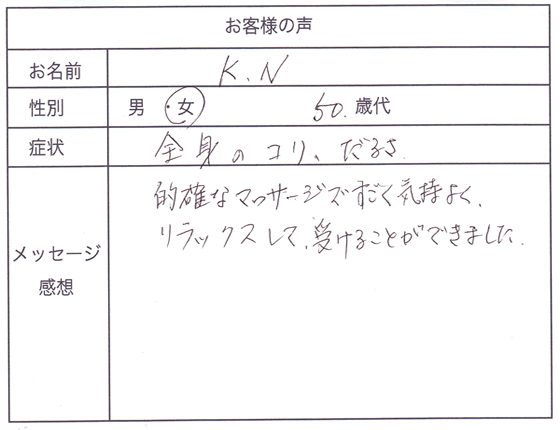 お客様の声
お名前 K.N
性別 男・女 50.歳代
症状 全身のコリ、だるさ
メッセージ
感想
的確なマッサージですごく気持よく、
リラックスして、受けることができました。